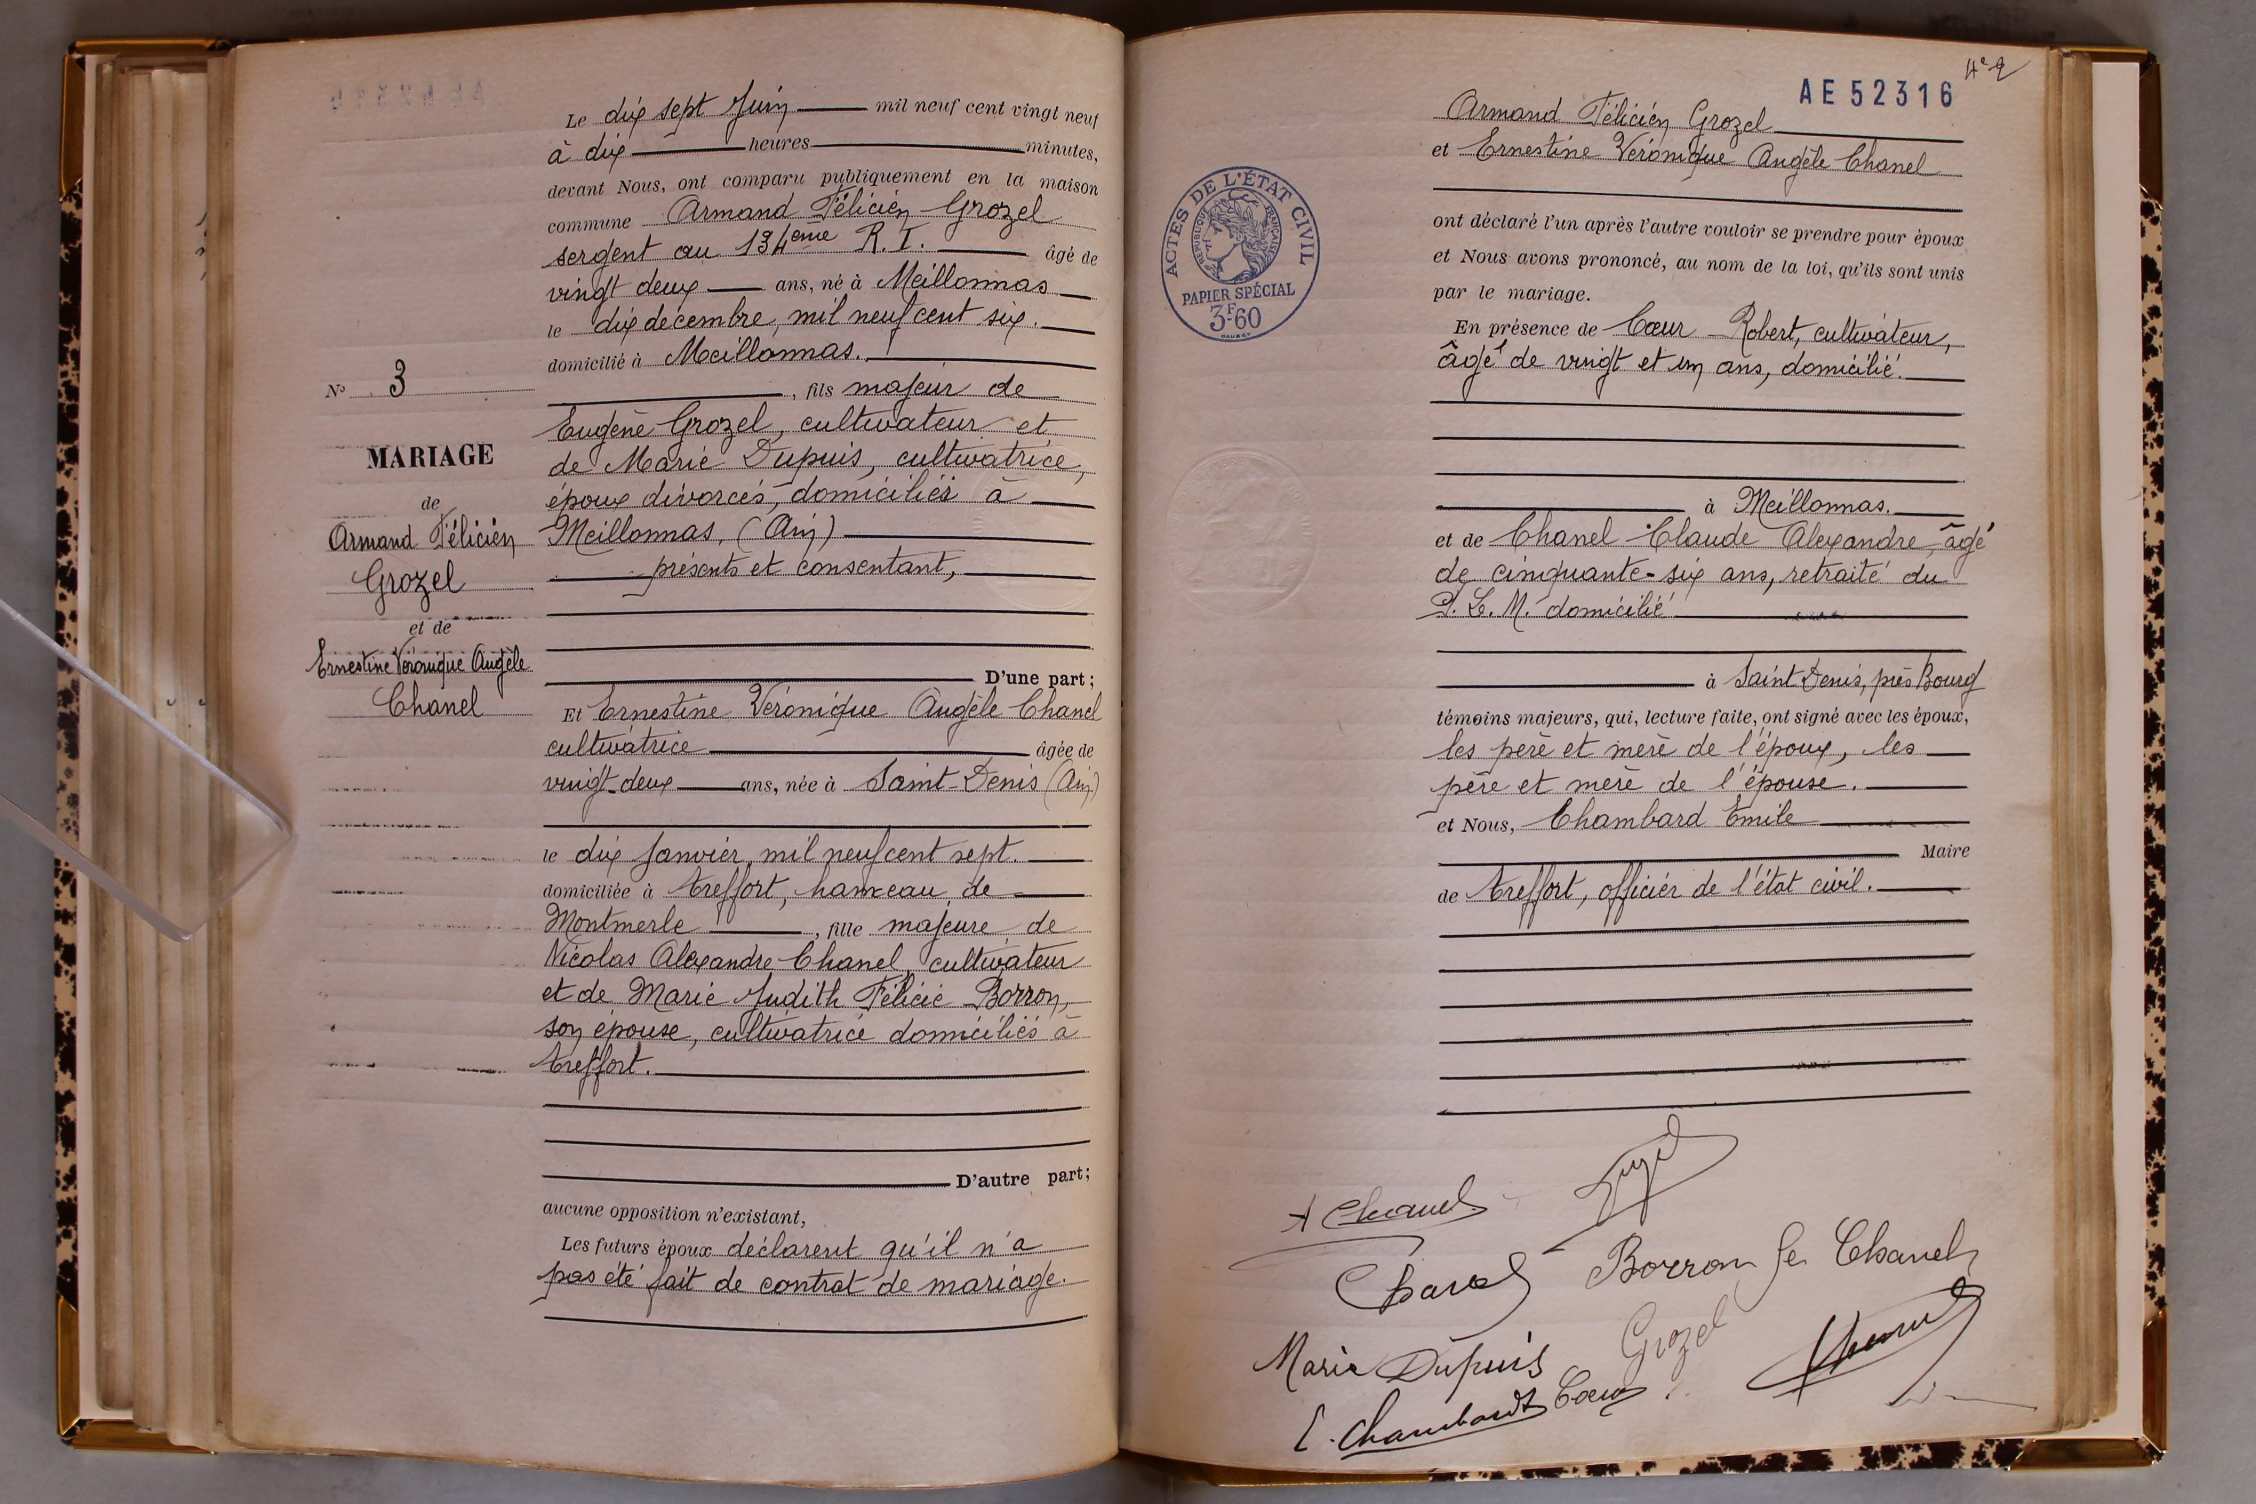 Le dix sept Juin mil neuf cent vingt neuf
à dix heures minutes,
devant Nous, ont comparu publiquement en la maison
commune Armand Félicien Grozel
sergent au 134eme R. I. âgé de
vingt deux ans, né à Meillonnas
le dix décembre, mil neuf cent six.
domicilié à Meillonnas.
, fils majeur de
Eugène Grozel, cultivateur et
de Marie Dupuis, cultivatrice,
époux divorcés, domiciliés à
Meillonnas, (Ain)
présents et consentant,
D'une part;
N° 3
MARIAGE
de
Armand Félicien
Grozel
et de
Ernestine Véronique Angèle
Chanel
Et Ernestine Véronique Angèle Chanel
cultivatrice âgée de
vingt-deux ans, née à Saint-Denis (Ain)
le dix Janvier, mil neuf cent sept.
domiciliée à Treffort, hameau de
Montmerle, fille majeure de
Nicolas Alexandre Chanel, cultivateur
et de Marie Judith Félicie Borron,
son épouse, cultivatrice domiciliés à
Treffort.
D'autre part;
aucune opposition n'existant,
Les futurs époux déclarent qu'il n'a
pas été fait de contrat de mariage.
AE 52316
Armand Félicien Grozel
et Ernestine Véronique Angèle Chanel
ACTES DE L'ÉTAT CIVIL
RÉPUBLIQUE FRANÇAISE
PAPIER SPÉCIAL
3F60
ont déclaré l'un après l'autre vouloir se prendre pour époux
et Nous avons prononcé, au nom de la loi, qu'ils sont unis
par le mariage.
En présence de Cœur Robert, cultivateur,
âgé de vingt et un ans, domicilié
à Meillonnas.
et de Chanel Claude Alexandre, âgé
de cinquante-six ans, retraité du
P. L. M. domicilié
à Saint Denis, près Bourg
témoins majeurs, qui, lecture faite, ont signé avec les époux,
les père et mère de l'époux, les
père et mère de l'épouse.
et Nous, Chambard Emile
Maire
de Treffort, officier de l'état civil.
A Chanel
Chanel
Borron fe Chanel
Marie Dupuis
Grozel
E. Chambard
Cœur